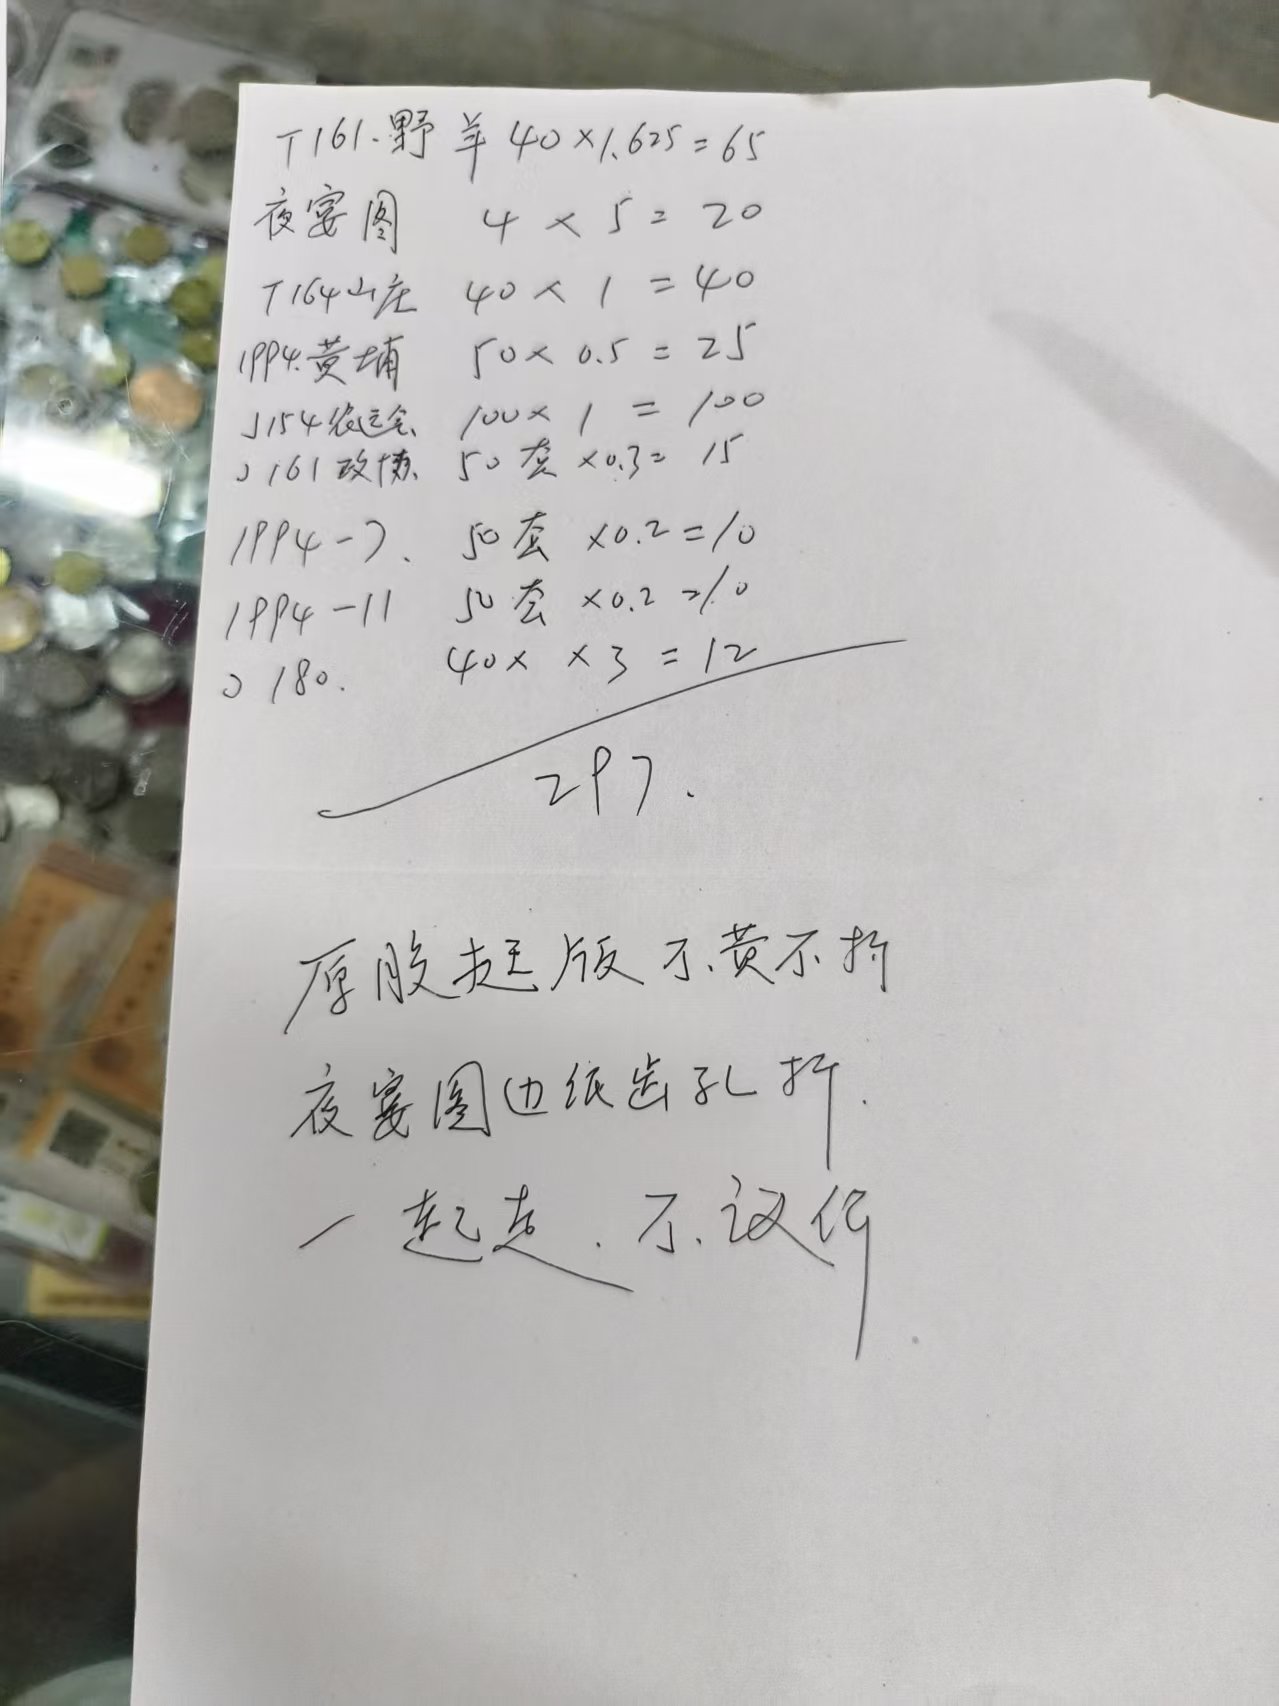 T161.野羊 40×1.625=65
夜宴图 4×5=20
T164山庄 40×1=40
1994.黄埔 50×0.5=25
J154农运会 100×1=100
J161政协 50套×0.3=15
1994-7. 50套×0.2=10
1994-11 50套×0.2=10
J180. 40××3=12
297.
原胶挺版不黄不折
夜宴图边纸齿孔折.
一起走.不议价